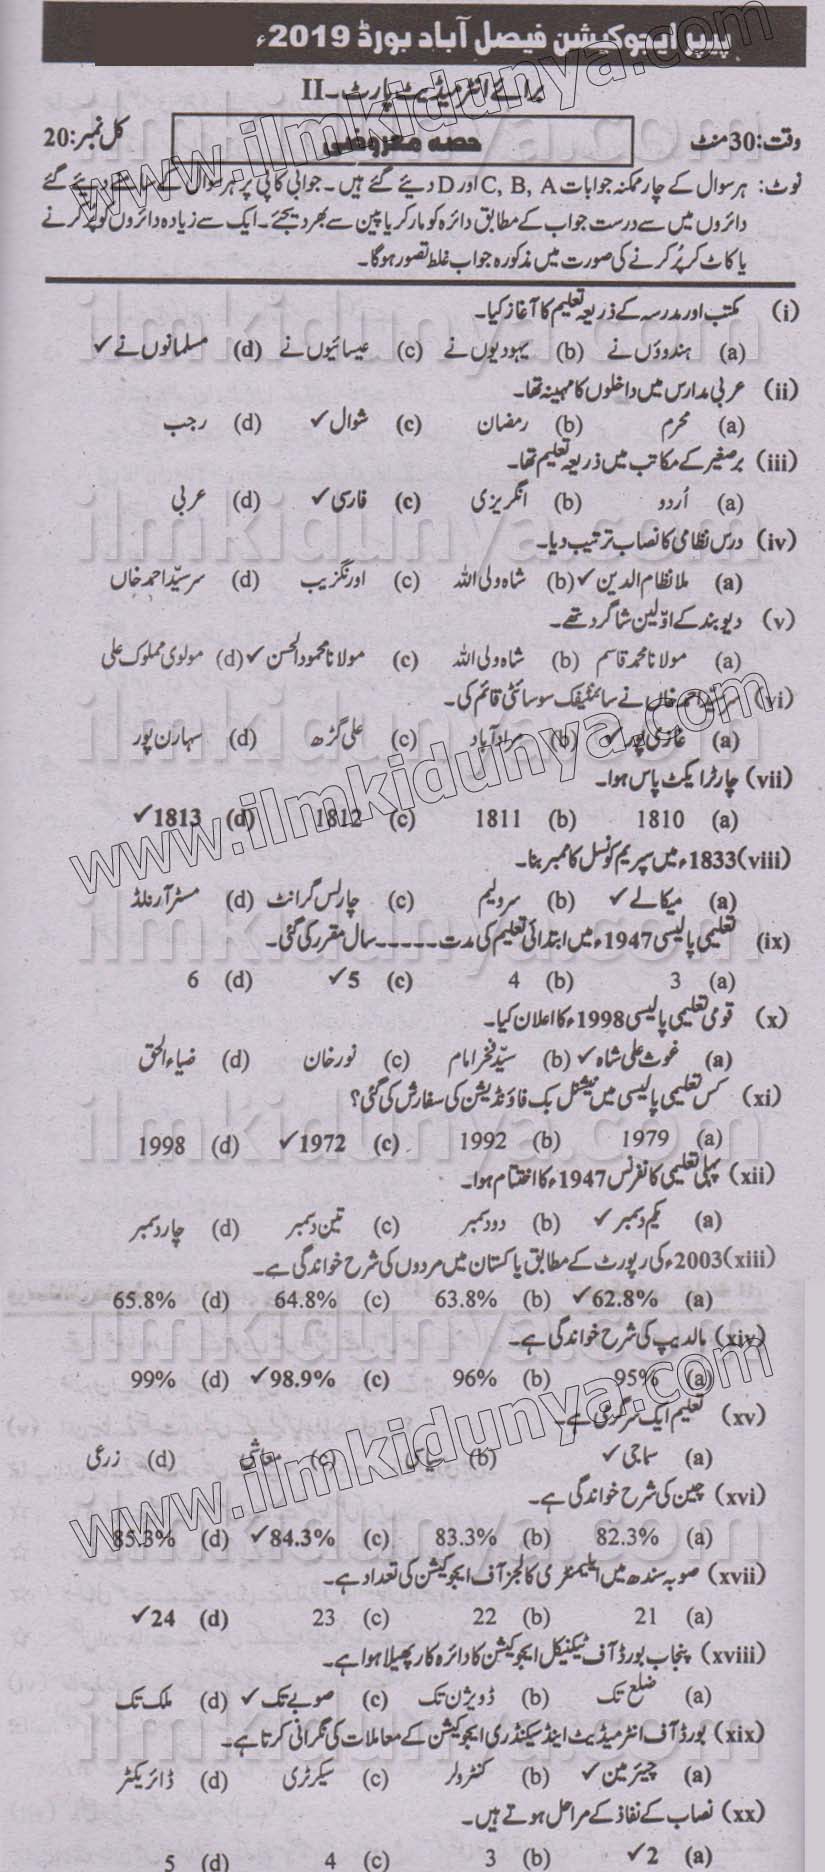 پیپر ایجوکیشن فیصل آباد بورڈ 2019ء
برائے انٹرمیڈیٹ پارٹ۔II
وقت: 30 منٹ حصہ معروضی کل نمبر: 20
نوٹ: ہر سوال کے چار ممکنہ جوابات C, B, A اور D دیئے گئے ہیں۔ جوابی کاپی پر ہر سوال کے سامنے دیئے گئے
دائروں میں سے درست جواب کے مطابق دائرہ کو مارکر یا پین سے بھر دیجئے۔ ایک سے زیادہ دائروں کو پُر کرنے
یا کاٹ کر پُر کرنے کی صورت میں مذکورہ جواب غلط تصور ہوگا۔
(i) مکتب اور مدرسہ کے ذریعہ تعلیم کا آغاز کیا۔
(a) ہندوؤں نے (b) یہودیوں نے (c) عیسائیوں نے (d) مسلمانوں نے ✓
(ii) عربی مدارس میں داخلوں کا مہینہ تھا۔
(a) محرم (b) رمضان (c) شوال ✓ (d) رجب
(iii) برصغیر کے مکاتب میں ذریعہ تعلیم تھا۔
(a) اُردو (b) انگریزی (c) فارسی ✓ (d) عربی
(iv) درس نظامی کا نصاب ترتیب دیا۔
(a) ملا نظام الدین ✓ (b) شاہ ولی اللہ (c) اورنگزیب (d) سر سیّد احمد خاں
(v) دیوبند کے اوّلین شاگرد تھے۔
(a) مولانا محمد قاسم (b) شاہ ولی اللہ (c) مولانا محمود الحسن ✓ (d) مولوی مملوک علی
(vi) سر سیّد احمد خاں نے سائنٹیفک سوسائٹی قائم کی۔
(a) غازی پور ✓ (b) مراد آباد (c) علی گڑھ (d) سہارن پور
(vii) چارٹر ایکٹ پاس ہوا۔
(a) 1810 (b) 1811 (c) 1812 (d) 1813 ✓
(viii) 1833ء میں سپریم کونسل کا ممبر بنا۔
(a) میکالے ✓ (b) سر ولیم (c) چارلس گرانٹ (d) مسٹر آرنلڈ
(ix) تعلیمی پالیسی 1947ء میں ابتدائی تعلیم کی مدت ۔۔۔۔۔ سال مقرر کی گئی۔
(a) 3 (b) 4 (c) 5 ✓ (d) 6
(x) قومی تعلیمی پالیسی 1998ء کا اعلان کیا۔
(a) غوث علی شاہ ✓ (b) سیّد فخر امام (c) نور خان (d) ضیاء الحق
(xi) کس تعلیمی پالیسی میں نیشنل بک فاؤنڈیشن کی سفارش کی گئی؟
(a) 1979 (b) 1992 (c) 1972 ✓ (d) 1998
(xii) پہلی تعلیمی کانفرنس 1947ء کا اختتام ہوا۔
(a) یکم دسمبر ✓ (b) دو دسمبر (c) تین دسمبر (d) چار دسمبر
(xiii) 2003ء کی رپورٹ کے مطابق پاکستان میں مردوں کی شرح خواندگی ہے۔
(a) 62.8% ✓ (b) 63.8% (c) 64.8% (d) 65.8%
(xiv) مالدیپ کی شرح خواندگی ہے۔
(a) 95% (b) 96% (c) 98.9% ✓ (d) 99%
(xv) تعلیم ایک سرگرمی ہے۔
(a) سماجی ✓ (b) سیاسی (c) معاشی (d) زرعی
(xvi) چین کی شرح خواندگی ہے۔
(a) 82.3% (b) 83.3% (c) 84.3% ✓ (d) 85.3%
(xvii) صوبہ سندھ میں ایلیمنٹری کالجز آف ایجوکیشن کی تعداد ہے۔
(a) 21 (b) 22 (c) 23 (d) 24 ✓
(xviii) پنجاب بورڈ آف ٹیکنیکل ایجوکیشن کا دائرہ کار پھیلا ہوا ہے۔
(a) ضلع تک (b) ڈویژن تک (c) صوبے تک ✓ (d) ملک تک
(xix) بورڈ آف انٹرمیڈیٹ اینڈ سیکنڈری ایجوکیشن کے معاملات کی نگرانی کرتا ہے۔
(a) چیئرمین ✓ (b) کنٹرولر (c) سیکرٹری (d) ڈائریکٹر
(xx) نصاب کے نفاذ کے مراحل ہوتے ہیں۔
(a) 2 ✓ (b) 3 (c) 4 (d) 5
www.ilmkidunya.com
www.ilmkidunya.com
www.ilmkidunya.com